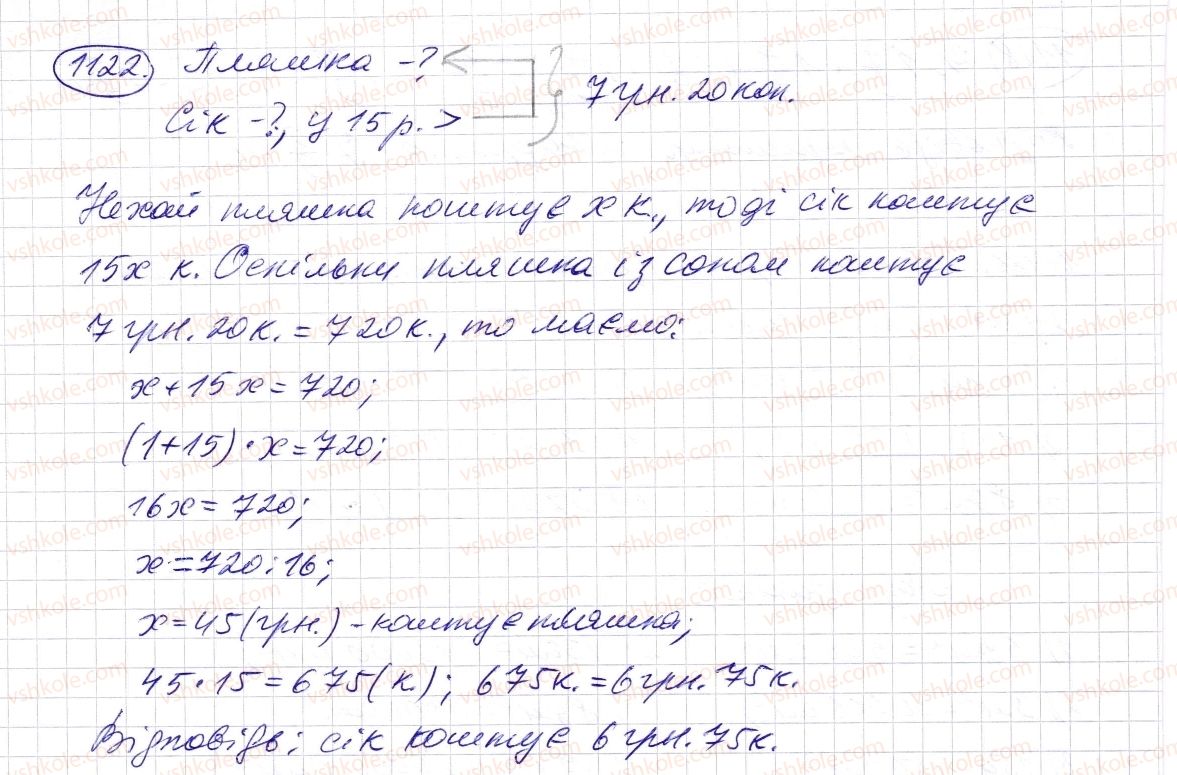 1122. Пляшка - ?
Сік - ?, у 15 р. >
7 грн. 20 коп.
Нехай пляшка коштує х к., тоді сік коштує
15х к. Оскільки пляшка із соком коштує
7 грн. 20 к. = 720 к., то маємо:
х + 15х = 720;
(1 + 15) · х = 720;
16х = 720;
х = 720 : 16;
х = 45 (грн.) - коштує пляшка;
45 · 15 = 675 (к.); 675 к. = 6 грн. 75 к.
Відповідь: сік коштує 6 грн. 75 к.